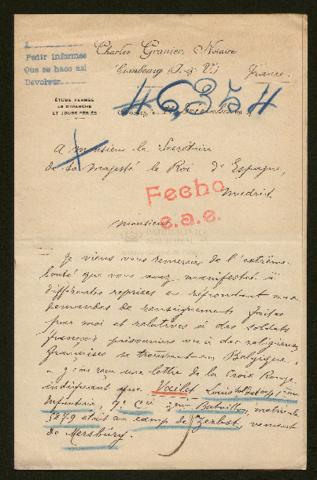 Charles Granier, Notaire
Combourg (I. & V.) France
Pedir informes
Que se haga así
Devolver
46354
ÉTUDE FERMÉE
LE DIMANCHE
ET JOURS FÉRIÉS
A Monsieur le Secrétaire
de Sa Majesté le Roi d'Espagne,
Madrid.
Fecho
s.a.e.
Monsieur
Je viens vous remercier de l'extrême
bonté que vous avez manifestée à
différentes reprises en répondant aux
demandes de renseignements faites
par moi et relatives à des soldats
français prisonniers ou à des religieuses
françaises se trouvant en Belgique.
J'ai reçu une lettre de la Croix Rouge
indiquant que Louis
Infanterie, 7e Cie 2me Bataillon, matricule
5879 était au camp de Zerbst, venant
de Mersburg.